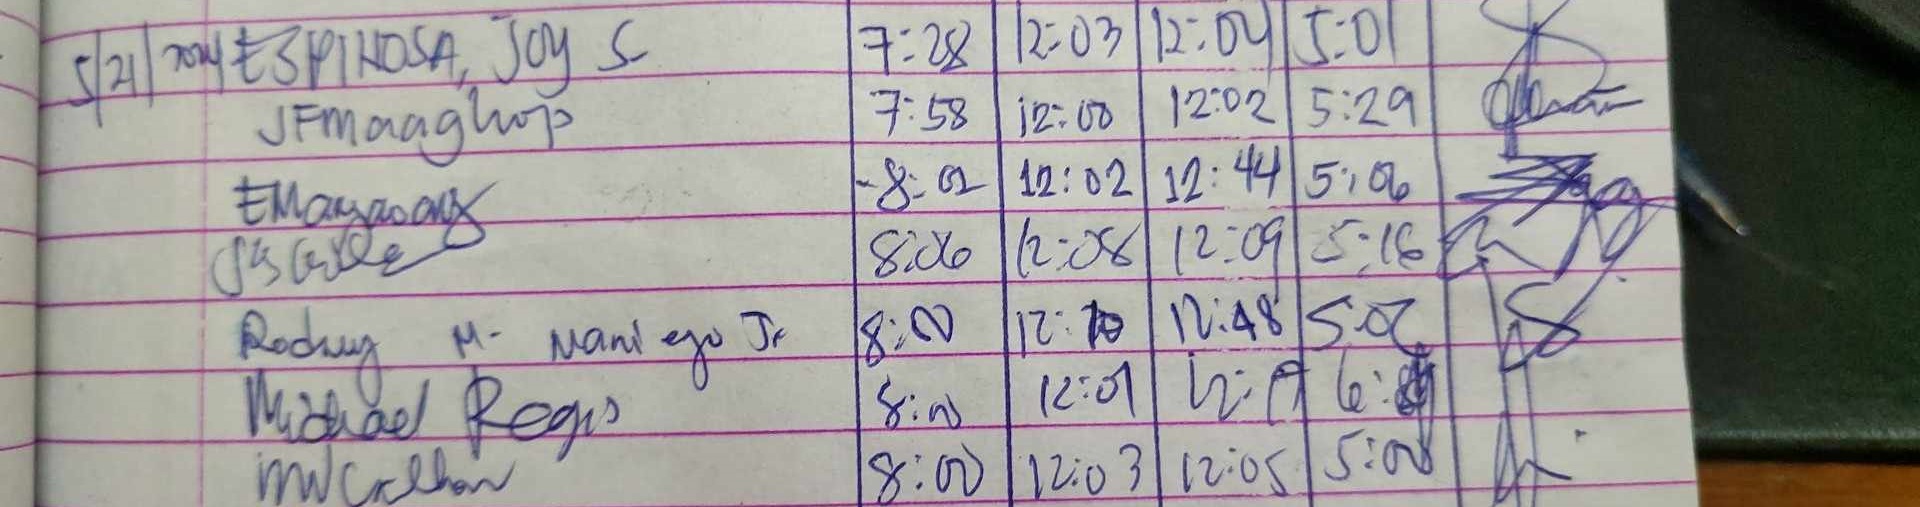 5/21/2024 ESPINOSA, JOY S. 7:28 12:03 12:04 5:01
JFmaaghop 7:58 12:00 12:02 5:29
-8:02 12:02 12:44 5:06
8:06 12:08 12:09 5:16
Rodney M. Maniego Jr 8:00 12:10 12:48 5:02
Michael Regis 8:00 12:01
8:00 12:03 12:05 5:00